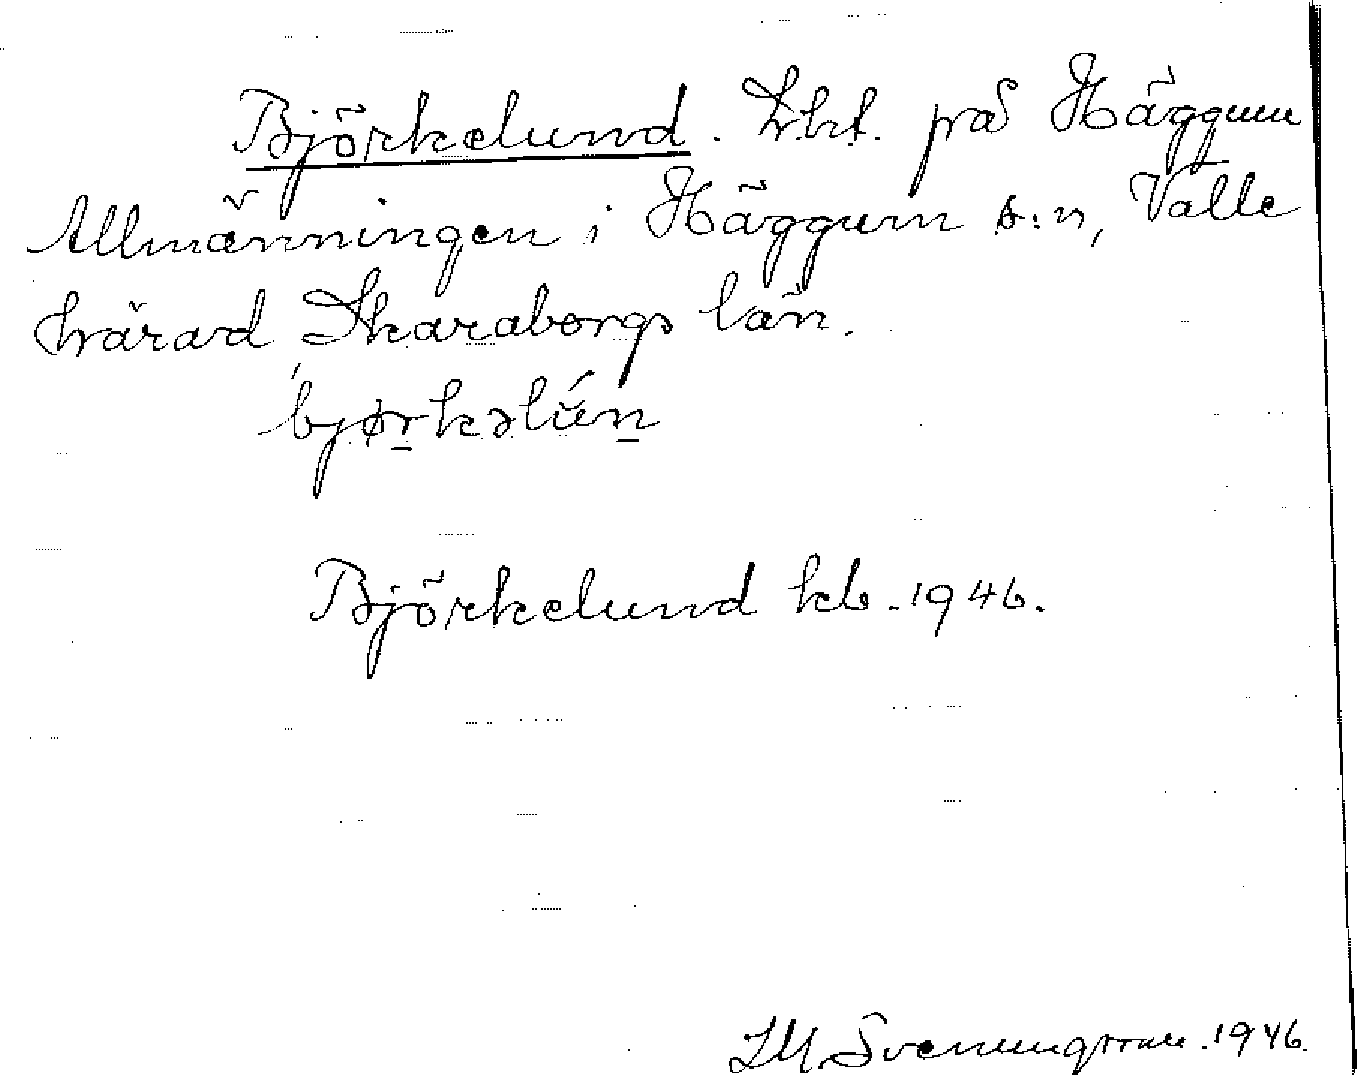 Björkelund. Lht. på Häggum
Allmänningen i Häggum s:n, Valle
härad Skaraborgs län.
Björkelund kb. 1946.
S.M. Svenungsson. 1946.